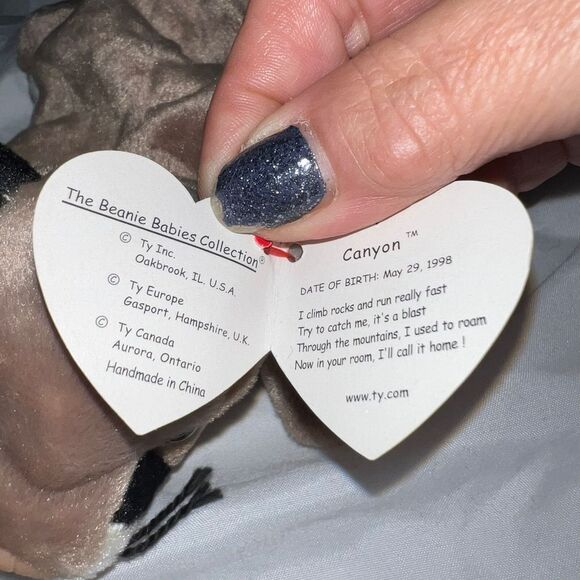 The Beanie Babies Collection®
© Ty Inc.
Oakbrook, IL. U.S.A.
© Ty Europe
Gasport, Hampshire, U.K.
© Ty Canada
Aurora, Ontario
Handmade in China
Canyon ™
DATE OF BIRTH: May 29, 1998
I climb rocks and run really fast
Try to catch me, it's a blast
Through the mountains, I used to roam
Now in your room, I'll call it home !
www.ty.com